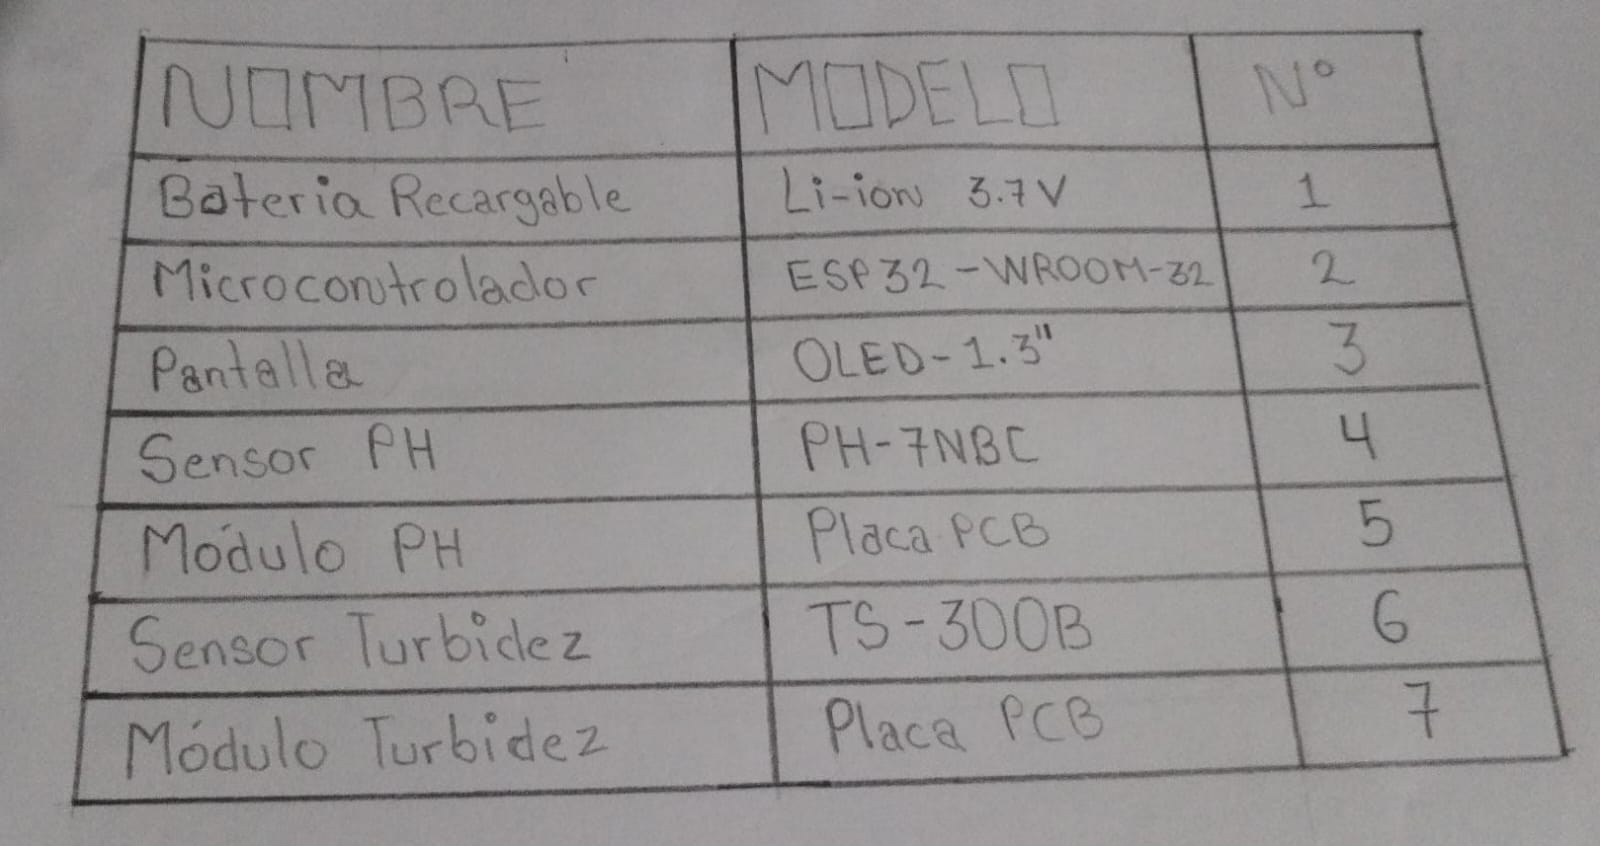 NOMBRE MODELO N°
Bateria Recargable Li-ion 3.7V 1
Microcontrolador ESP32-WROOM-32 2
Pantalla OLED-1.3" 3
Sensor PH PH-7NBC 4
Módulo PH Placa PCB 5
Sensor Turbidez TS-300B 6
Módulo Turbidez Placa PCB 7